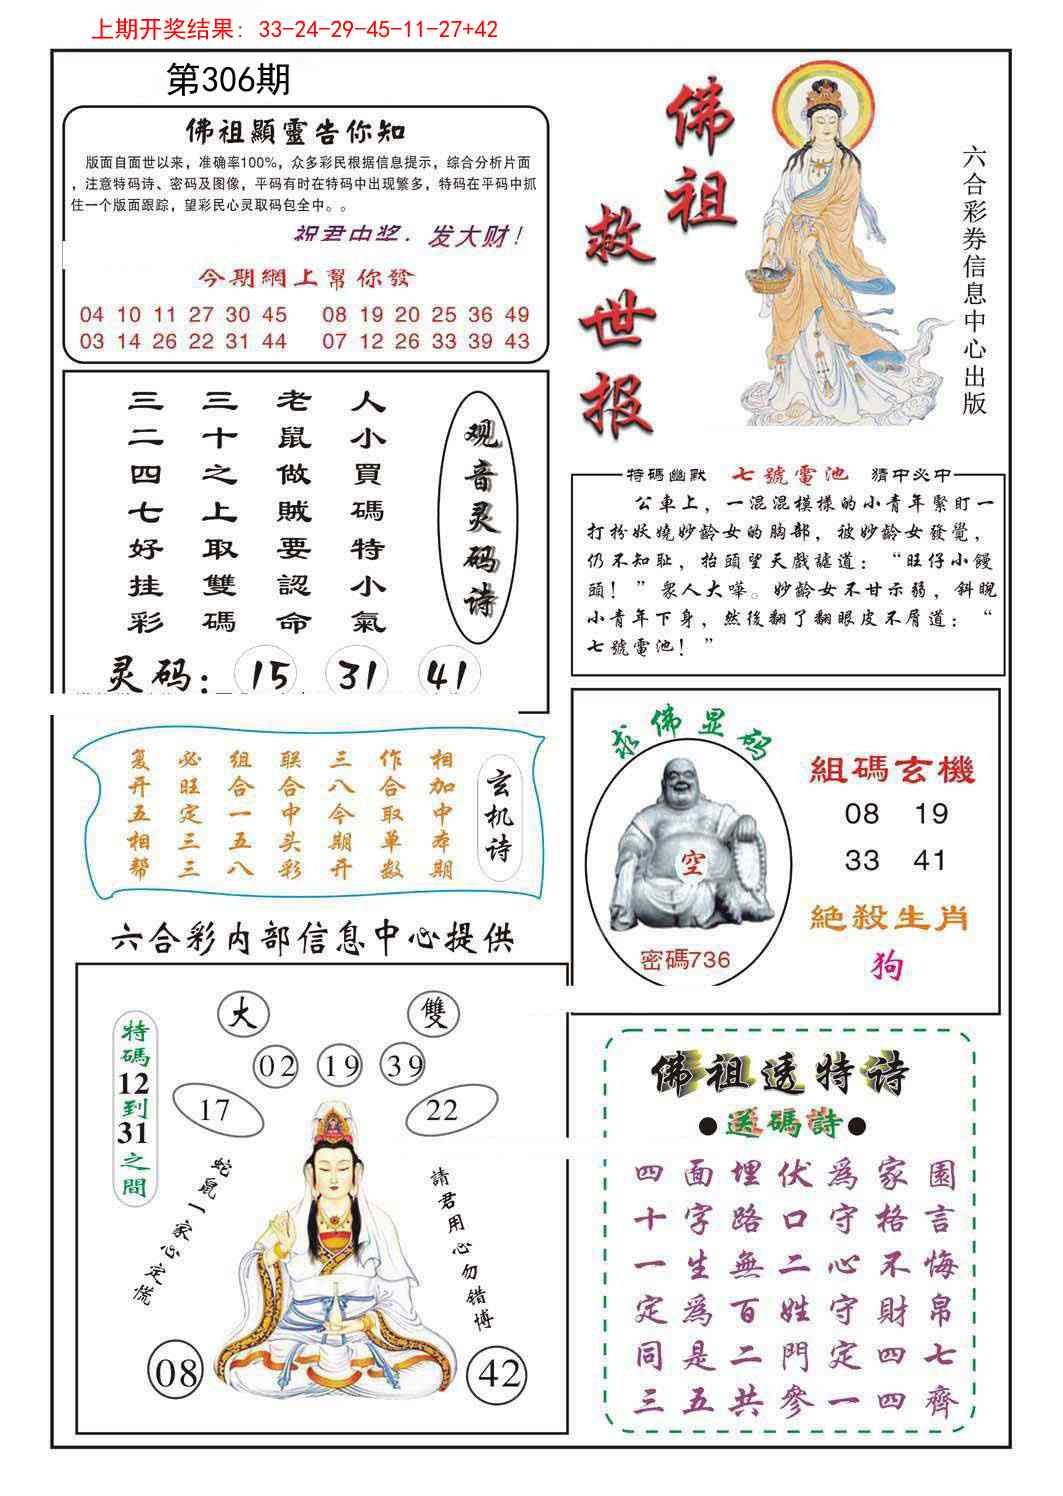 上期开奖结果: 33-24-29-45-11-27+42
第306期
佛祖顯靈告你知
版面自面世以来，准确率100%，众多彩民根据信息提示，综合分析片面
，注意特码诗、密码及图像，平码有时在特码中出现繁多，特码在平码中抓
住一个版面跟踪，望彩民心灵取码包全中。。
祝君中奖，发大财!
今期網上幫你發
04 10 11 27 30 45 08 19 20 25 36 49
03 14 26 22 31 44 07 12 26 33 39 43
佛祖
救世报
六合彩券信息中心出版
观音灵码诗
人小買碼特小氣
老鼠做賊要認命
三十之上取雙碼
三二四七好挂彩
灵码: 15 31 41
特碼幽默 七號電池 猜中必中
公車上，一混混模樣的小青年緊盯一
打扮妖嬈妙齡女的胸部，被妙齡女發覺，
仍不知耻，抬頭望天戲謔道：“旺仔小饅
頭！”衆人大嘩。妙齡女不甘示弱，斜睨
小青年下身，然後翻了翻眼皮不屑道：“
七號電池！”
玄机诗
相加中本期
作合取单数
三八今期开
联合中头彩
组合一五八
必旺定三三
复开五相帮
求佛显码
空
密碼736
組碼玄機
08 19
33 41
絕殺生肖
狗
六合彩内部信息中心提供
特碼12到31之間
大 雙
02 19 39
17 22
蛇鼠一家心定慌
請君用心勿错博
08 42
佛祖透特诗
●送碼詩●
四面埋伏爲家園
十字路口守格言
一生無二心不悔
定爲百姓守財帛
同是二門定四七
三五共參一四齊